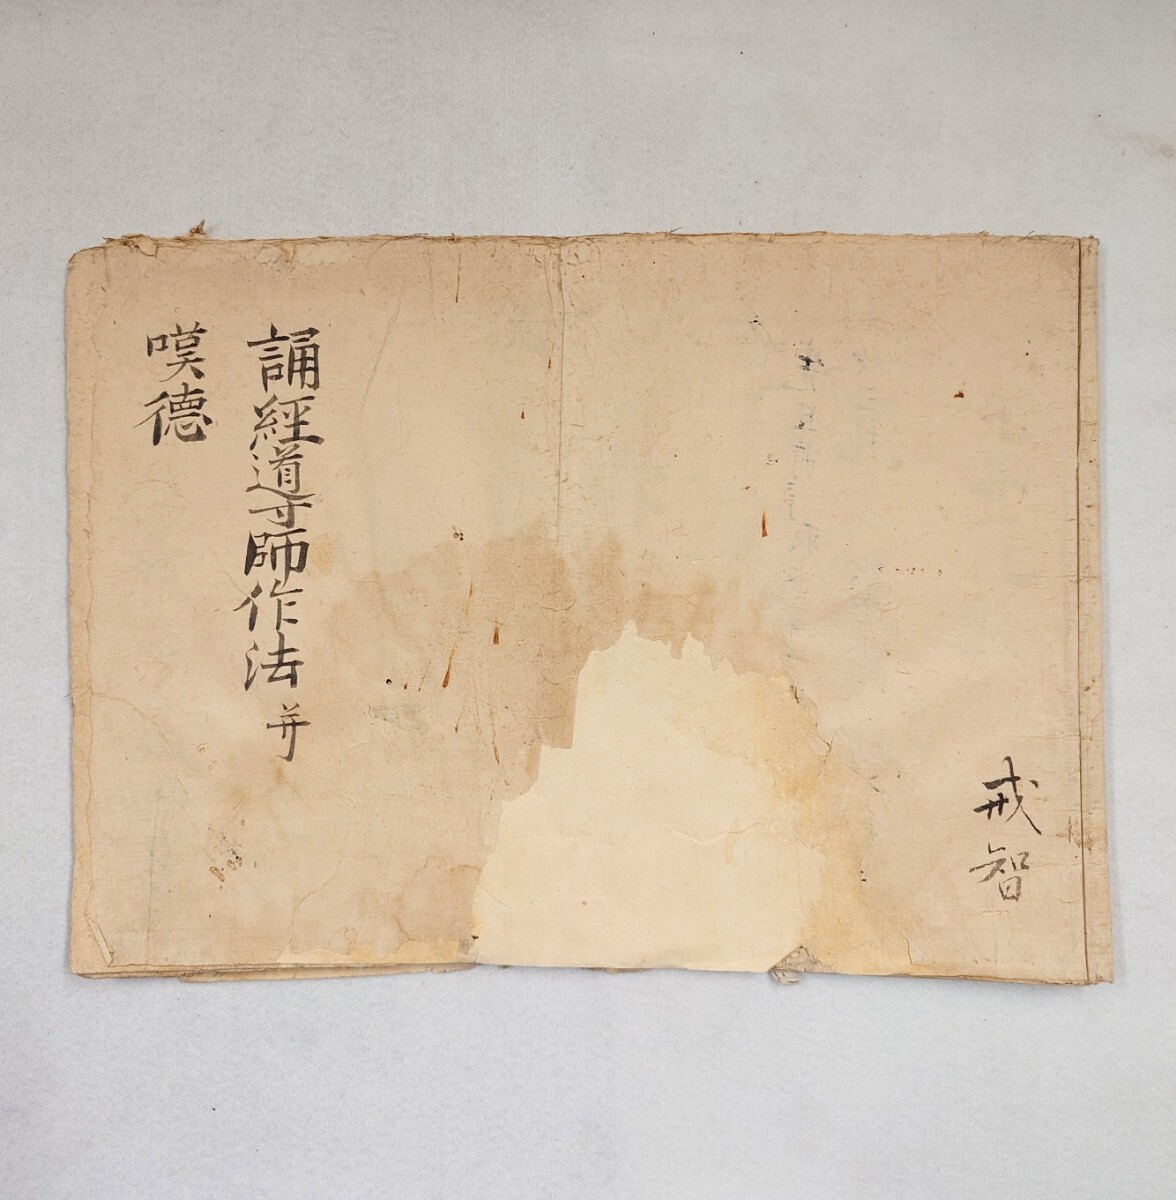 戒智
誦經導師作法并
嘆德